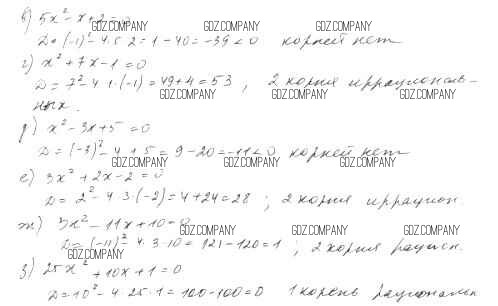 в) 5x² - x + 2 = 0
GDZ.COMPANY GDZ.COMPANY GDZ.COMPANY
D = (-1)² - 4·5·2 = 1 - 40 = -39 < 0 корней нет
г) x² + 7x - 1 = 0
D = 7² - 4·1·(-1) = 49 + 4 = 53, 2 корня иррациональ-
GDZ.COMPANY GDZ.COMPANY GDZ.COMPANY
ных.
д) x² - 3x + 5 = 0
D = (-3)² - 4·5 = 9 - 20 = -11 < 0 корней нет
GDZ.COMPANY GDZ.COMPANY GDZ.COMPANY
е) 3x² + 2x - 2 = 0
D = 2² - 4·3·(-2) = 4 + 24 = 28; 2 корня иррацион.
ж) 3x² - 11x + 10 = 0
GDZ.COMPANY GDZ.COMPANY GDZ.COMPANY
D = (-11)² - 4·3·10 = 121 - 120 = 1; 2 корня рацион.
GDZ.COMPANY
з) 25x² + 10x + 1 = 0
D = 10² - 4·25·1 = 100 - 100 = 0 1 корень рациональн